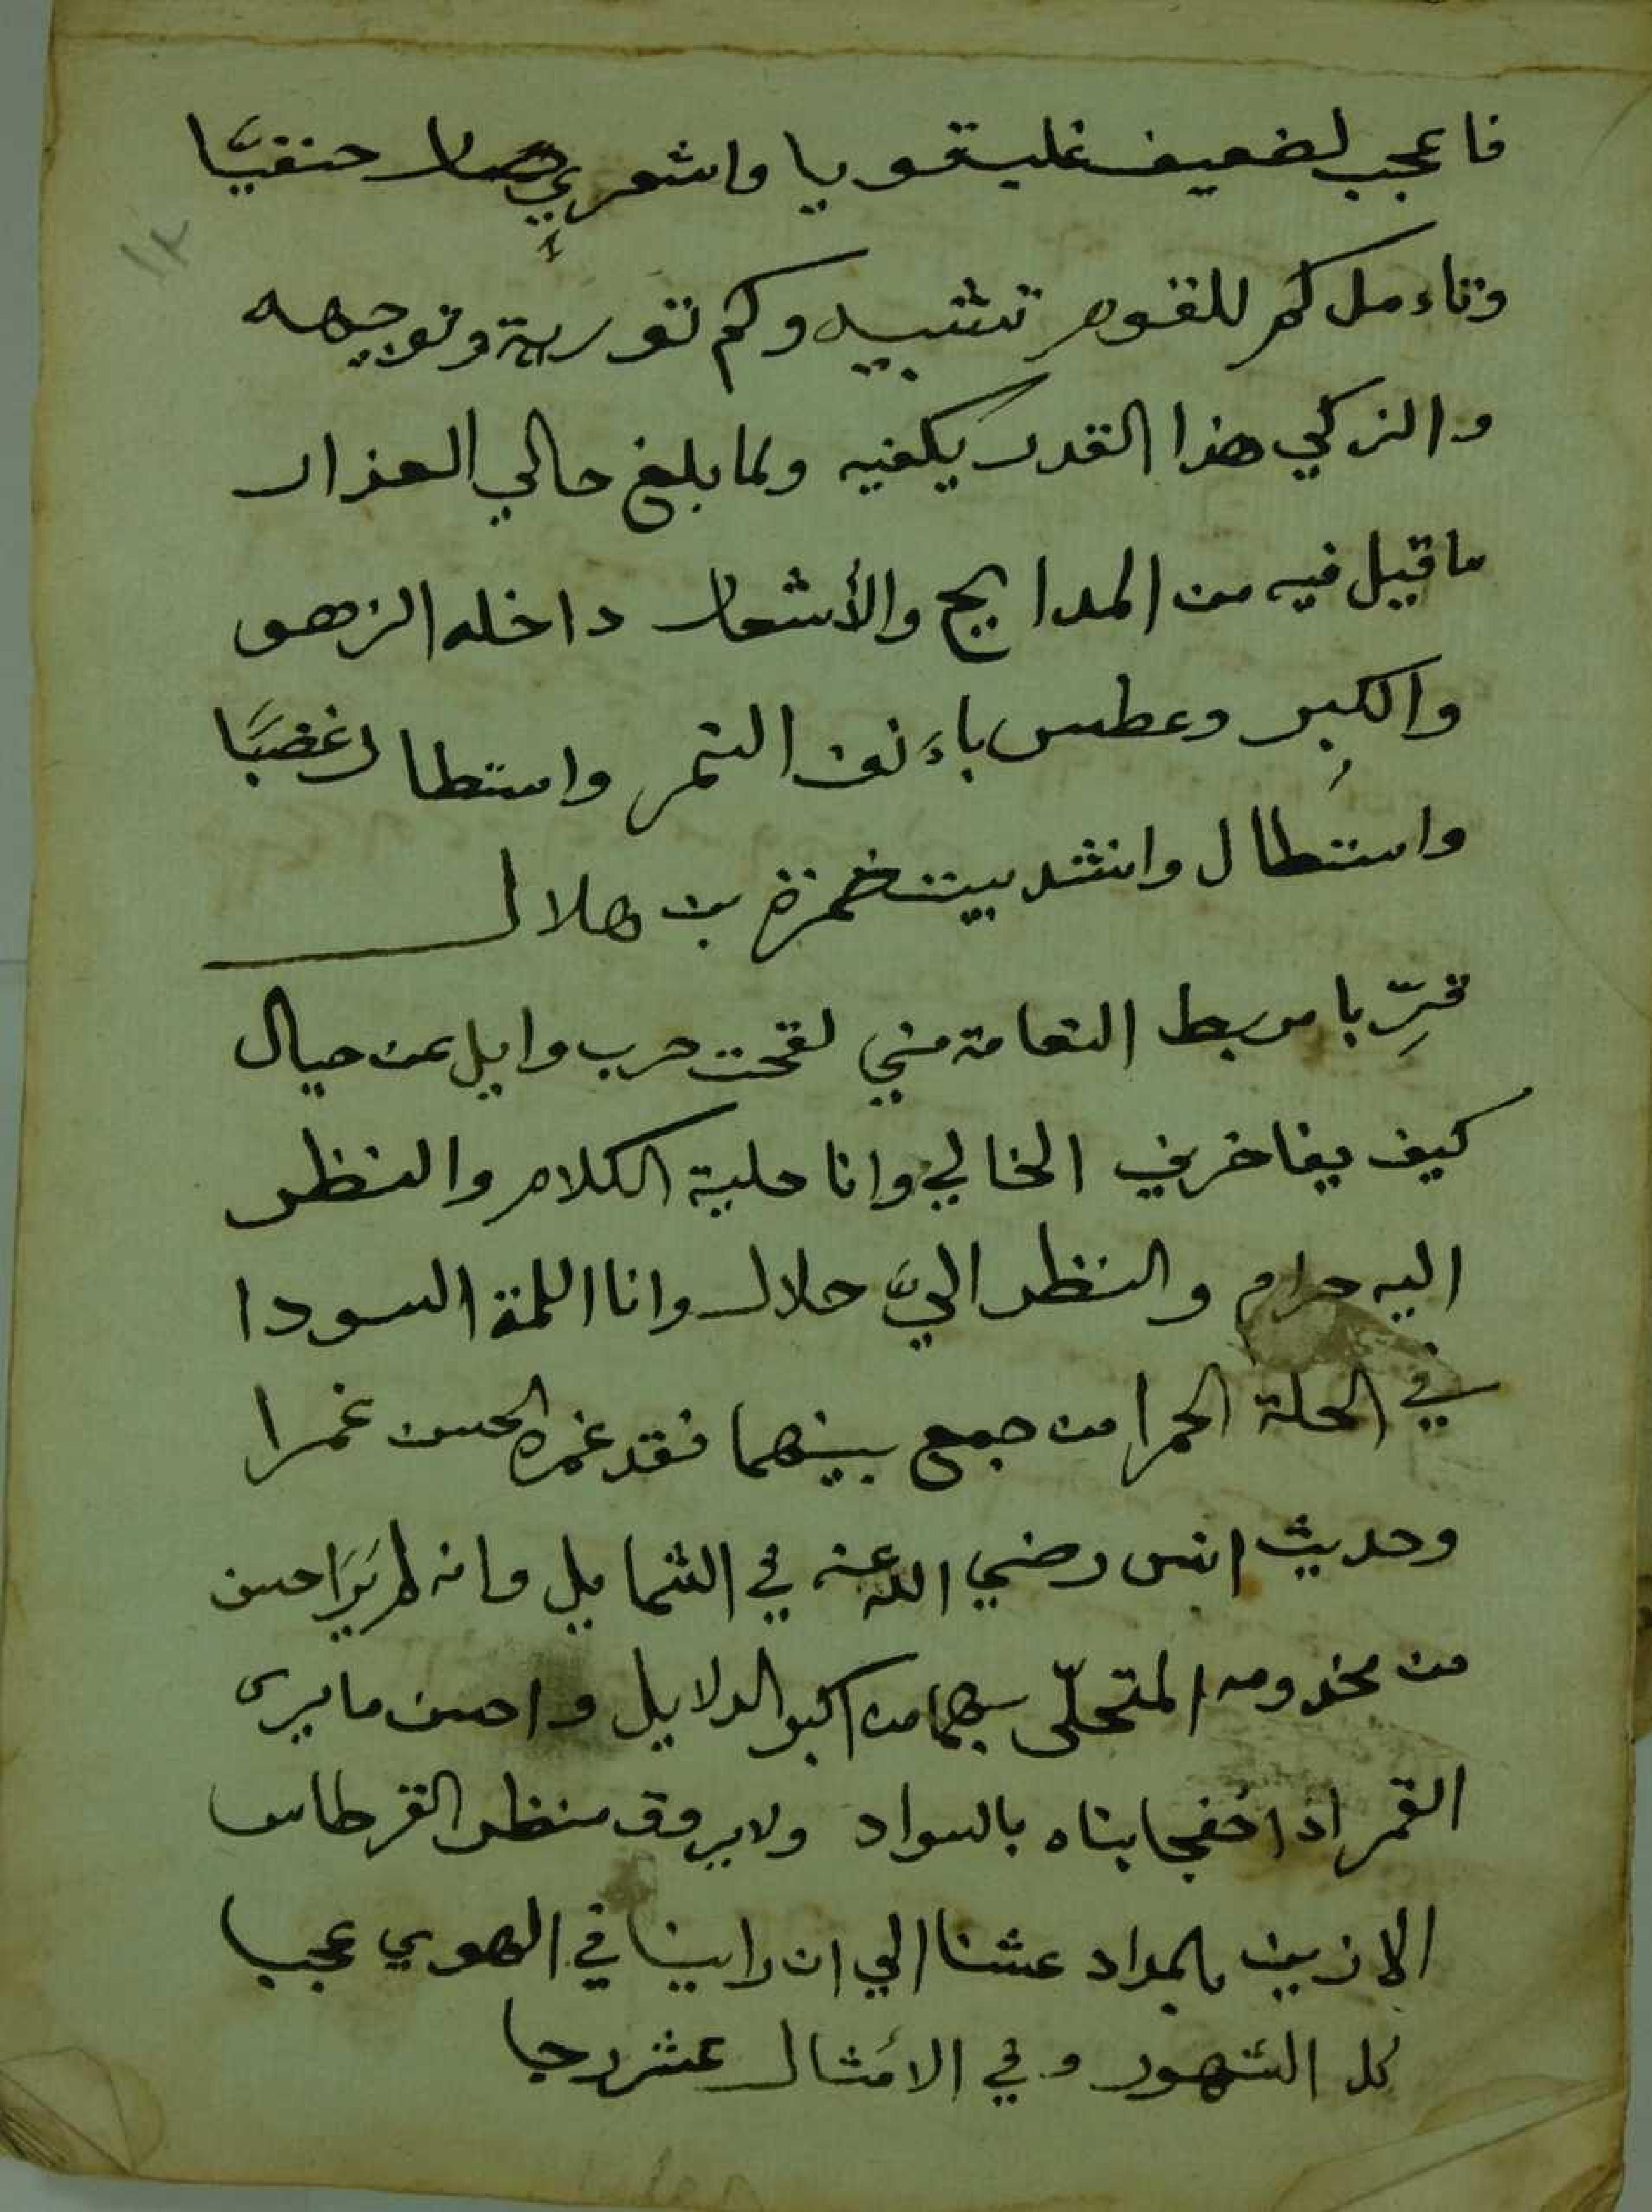 فاعجب لضعيف غلب قويا واشعري صار حنفيًّا
١٢
وتاءمل كم للقوم تشبيه وكم تورية وتوجيهه
والزكي هذا القدر يكفيه ولما بلغ حالي العذار
ما قيل فيه من المدايح والأشعار داخله الزهو
والكِبر وعطس باءَنف الشمر واستطار غضبًا
واستطال وانشد بيت ضمرة بن هلال
قرِّبا مربط النعامة مني لقحت حرب وايل عن حيال
كيف يفاخرني الخالي وانا حلية الكلام والنظر
اليه حرام والنظر اليَّ حلال وانا اللمة السودا
في الحلة الحمرا من جمع بينهما فقد غمره الحسن غمرا
وحديث انس رضي الله عنه في الشمايل وانه لم يَرَ احسن
من مخدومه المتحلّى بهما من اكبر الدلايل واحسن ما يرى
القمر اذا خفجابناه بالسواد ولا يروق منظر القرطاس
الا زين بالمداد عشنا الي ان راينا في الهوي عجبا
كل الشهور وفي الامَثال عش رجبا